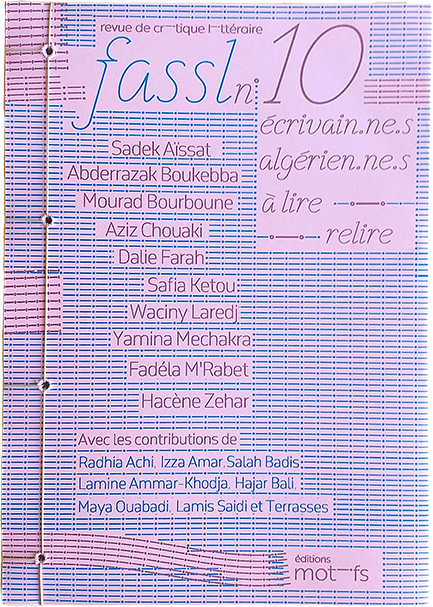 revue de critique littéraire
fassl n° 10
écrivain.ne.s
algérien.ne.s
à lire
relire
Sadek Aïssat
Abderrazak Boukebba
Mourad Bourboune
Aziz Chouaki
Dalie Farah
Safia Ketou
Waciny Laredj
Yamina Mechakra
Fadéla M'Rabet
Hacène Zehar
Avec les contributions de
Radhia Achi, Izza Amar, Salah Badis
Lamine Ammar-Khodja, Hajar Bali,
Maya Ouabadi, Lamis Saidi et Terrasses
éditions
motifs